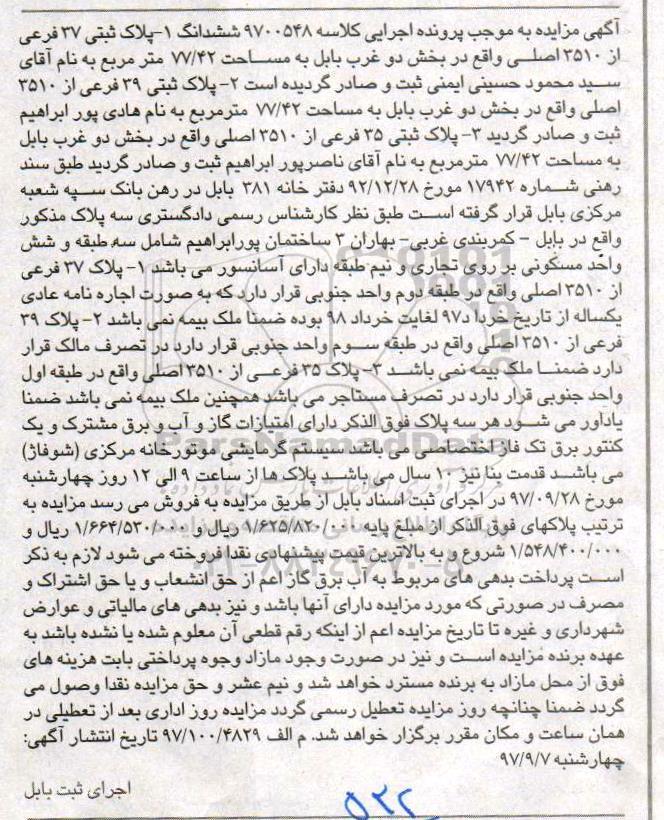 آگهی مزایده به موجب پرونده اجرایی کلاسه ۹۷۰۰۵۴۸ ششدانگ ۱-پلاک ثبتی ۳۷ فرعی
از ۳۵۱۰ اصلی واقع در بخش دو غرب بابل به مساحت ۷۷/۴۲ متر مربع به نام آقای
سید محمود حسینی ایمنی ثبت و صادر گردیده است ۲- پلاک ثبتی ۳۹ فرعی از ۳۵۱۰
اصلی واقع در بخش دو غرب بابل به مساحت ۷۷/۴۲ مترمربع به نام هادی پور ابراهیم
ثبت و صادر گردید ۳- پلاک ثبتی ۳۵ فرعی از ۳۵۱۰ اصلی واقع در بخش دو غرب بابل
به مساحت ۷۷/۴۲ مترمربع به نام آقای ناصرپور ابراهیم ثبت و صادر گردید طبق سند
رهنی شماره ۱۷۹۴۲ مورخ ۹۲/۱۲/۲۸ دفتر خانه ۳۸۱ بابل در رهن بانک سپه شعبه
مرکزی بابل قرار گرفته است طبق نظر کارشناس رسمی دادگستری سه پلاک مذکور
واقع در بابل - کمربندی غربی- بهاران ۳ ساختمان پورابراهیم شامل سه طبقه و شش
واحد مسکونی بر روی تجاری و نیم طبقه دارای آسانسور می باشد ۱- پلاک ۳۷ فرعی
از ۳۵۱۰ اصلی واقع در طبقه دوم واحد جنوبی قرار دارد که به صورت اجاره نامه عادی
یکساله از تاریخ خردا د۹۷ لغایت خرداد ۹۸ بوده ضمنا ملک بیمه نمی باشد ۲- پلاک ۳۹
فرعی از ۳۵۱۰ اصلی واقع در طبقه سوم واحد جنوبی قرار دارد در تصرف مالک قرار
دارد ضمنا ملک بیمه نمی باشد ۳- پلاک ۳۵ فرعی از ۳۵۱۰ اصلی واقع در طبقه اول
واحد جنوبی قرار دارد در تصرف مستاجر می باشد همچنین ملک بیمه نمی باشد ضمنا
یادآور می شود هر سه پلاک فوق الذکر دارای امتیازات گاز و آب و برق مشترک و یک
کنتور برق تک فاز اختصاصی می باشد سیستم گرمایشی موتورخانه مرکزی (شوفاژ)
می باشد قدمت بنا نیز ۱۰ سال می باشد پلاک ها از ساعت ۹ الی ۱۲ روز چهارشنبه
مورخ ۹۷/۰۹/۲۸ در اجرای ثبت اسناد بابل از طریق مزایده به فروش می رسد مزایده به
ترتیب پلاکهای فوق الذکر از مبلغ پایه ۱/۶۲۵/۸۲۰/۰۰۰ ریال و ۱/۶۶۴/۵۳۰/۰۰۰ ریال و
۱/۵۴۸/۴۰۰/۰۰۰ شروع و به بالاترین قیمت پیشنهادی نقدا فروخته می شود لازم به ذکر
است پرداخت بدهی های مربوط به آب برق گاز اعم از حق انشعاب و یا حق اشتراک و
مصرف در صورتی که مورد مزایده دارای آنها باشد و نیز بدهی های مالیاتی و عوارض
شهرداری و غیره تا تاریخ مزایده اعم از اینکه رقم قطعی آن معلوم شده یا نشده باشد به
عهده برنده مزایده است و نیز در صورت وجود مازاد وجوه پرداختی بابت هزینه های
فوق از محل مازاد به برنده مسترد خواهد شد و نیم عشر و حق مزایده نقدا وصول می
گردد ضمنا چنانچه روز مزایده تعطیل رسمی گردد مزایده روز اداری بعد از تعطیلی در
همان ساعت و مکان مقرر برگزار خواهد شد. م الف ۹۷/۱۰۰/۴۸۲۹ تاریخ انتشار آگهی:
چهارشنبه ۹۷/۹/۷
اجرای ثبت بابل
۵۳۲
ParsNamadData